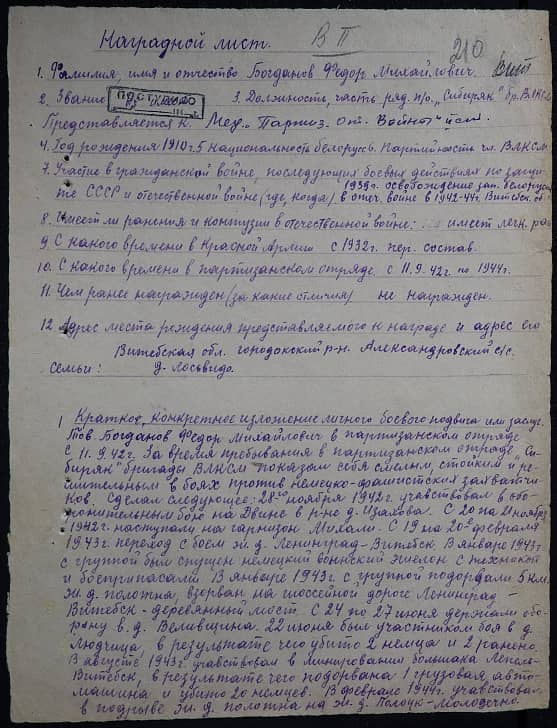 Наградной лист. В II
210
1. Фамилия, имя и отчество Богданов Федор Михайлович.
2. Звание 3. Должность, часть ряд. п/о „Сибиряк" бр. ВЛКСМ
ПОСТУПИЛО
Представляется к Мед. „Партиз. От. Войны" II ст.
4. Год рождения 1910 г. 5 национальность белорусс. Партийность чл. ВЛКСМ
7. Участие в гражданской войне, последующих боевых действиях по защи-
1939г. освобождение зап. Белорусси
те СССР и отечественной войне (где, когда) в отеч. войне в 1942-44г. Витебск. об.
8. Имеет ли ранения и контузии в отечественной войне: имеет легк. ран
9. С какого времени в Красной Армии с 1932г. пер. состав.
10. С какого времени в партизанском отряде с 11.9.42г. по 1944г.
11. Чем ранее награжден (за какие отличия) не награжден.
12 Адрес места рождения представляемого к награде и адрес его
Витебская обл. городокский р-н. Александровский с/с.
семьи: д. Лосьвидо.
1 Краткое, конкретное изложение личного боевого подвига или заслуг.
Тов. Богданов Федор Михайлович в партизанском отряде
с 11.9.42г. За время пребывания в партизанском отряде „Си-
биряк" бригады ВЛКСМ показал себя смелым, стойким и ре-
шительным в боях против немецко-фашистских захватчи-
ков. Сделал следующее: 28го ноября 1942г. учавствовал в обо-
ронительным бою на Двине в р-но д. С 20 на 21 ноября
1942г. наступали на гарнизон Михали. С 19 на 20е февраля
1943г. переход с боем ж.д. Ленинград-Витебск. В январе 1943г.
с группой был спущен немецкий воинский эшелон с техникой
и боеприпасами. В январе 1943г. с группой подордали 5 км.
ж.д. полотна, взорван на шоссейной дороге Ленинград-
Витебск - деревянный мост. С 24 по 27 июня держали обо-
рону в д. Веливщина. 22 июня был участником боя в д.
Людчица, в результате чего убито 2 немца и 2 ранено.
В августе 1943г. учавствовал в минировании большака Лепель-
Витебск, в результате чего подорвана 1 грузовая авто-
машина и убито 20 немцев. В феврале 1944г. учавствовал
в подрыве ж.д. полотна на ж.д. Полоцк-Молодечно.